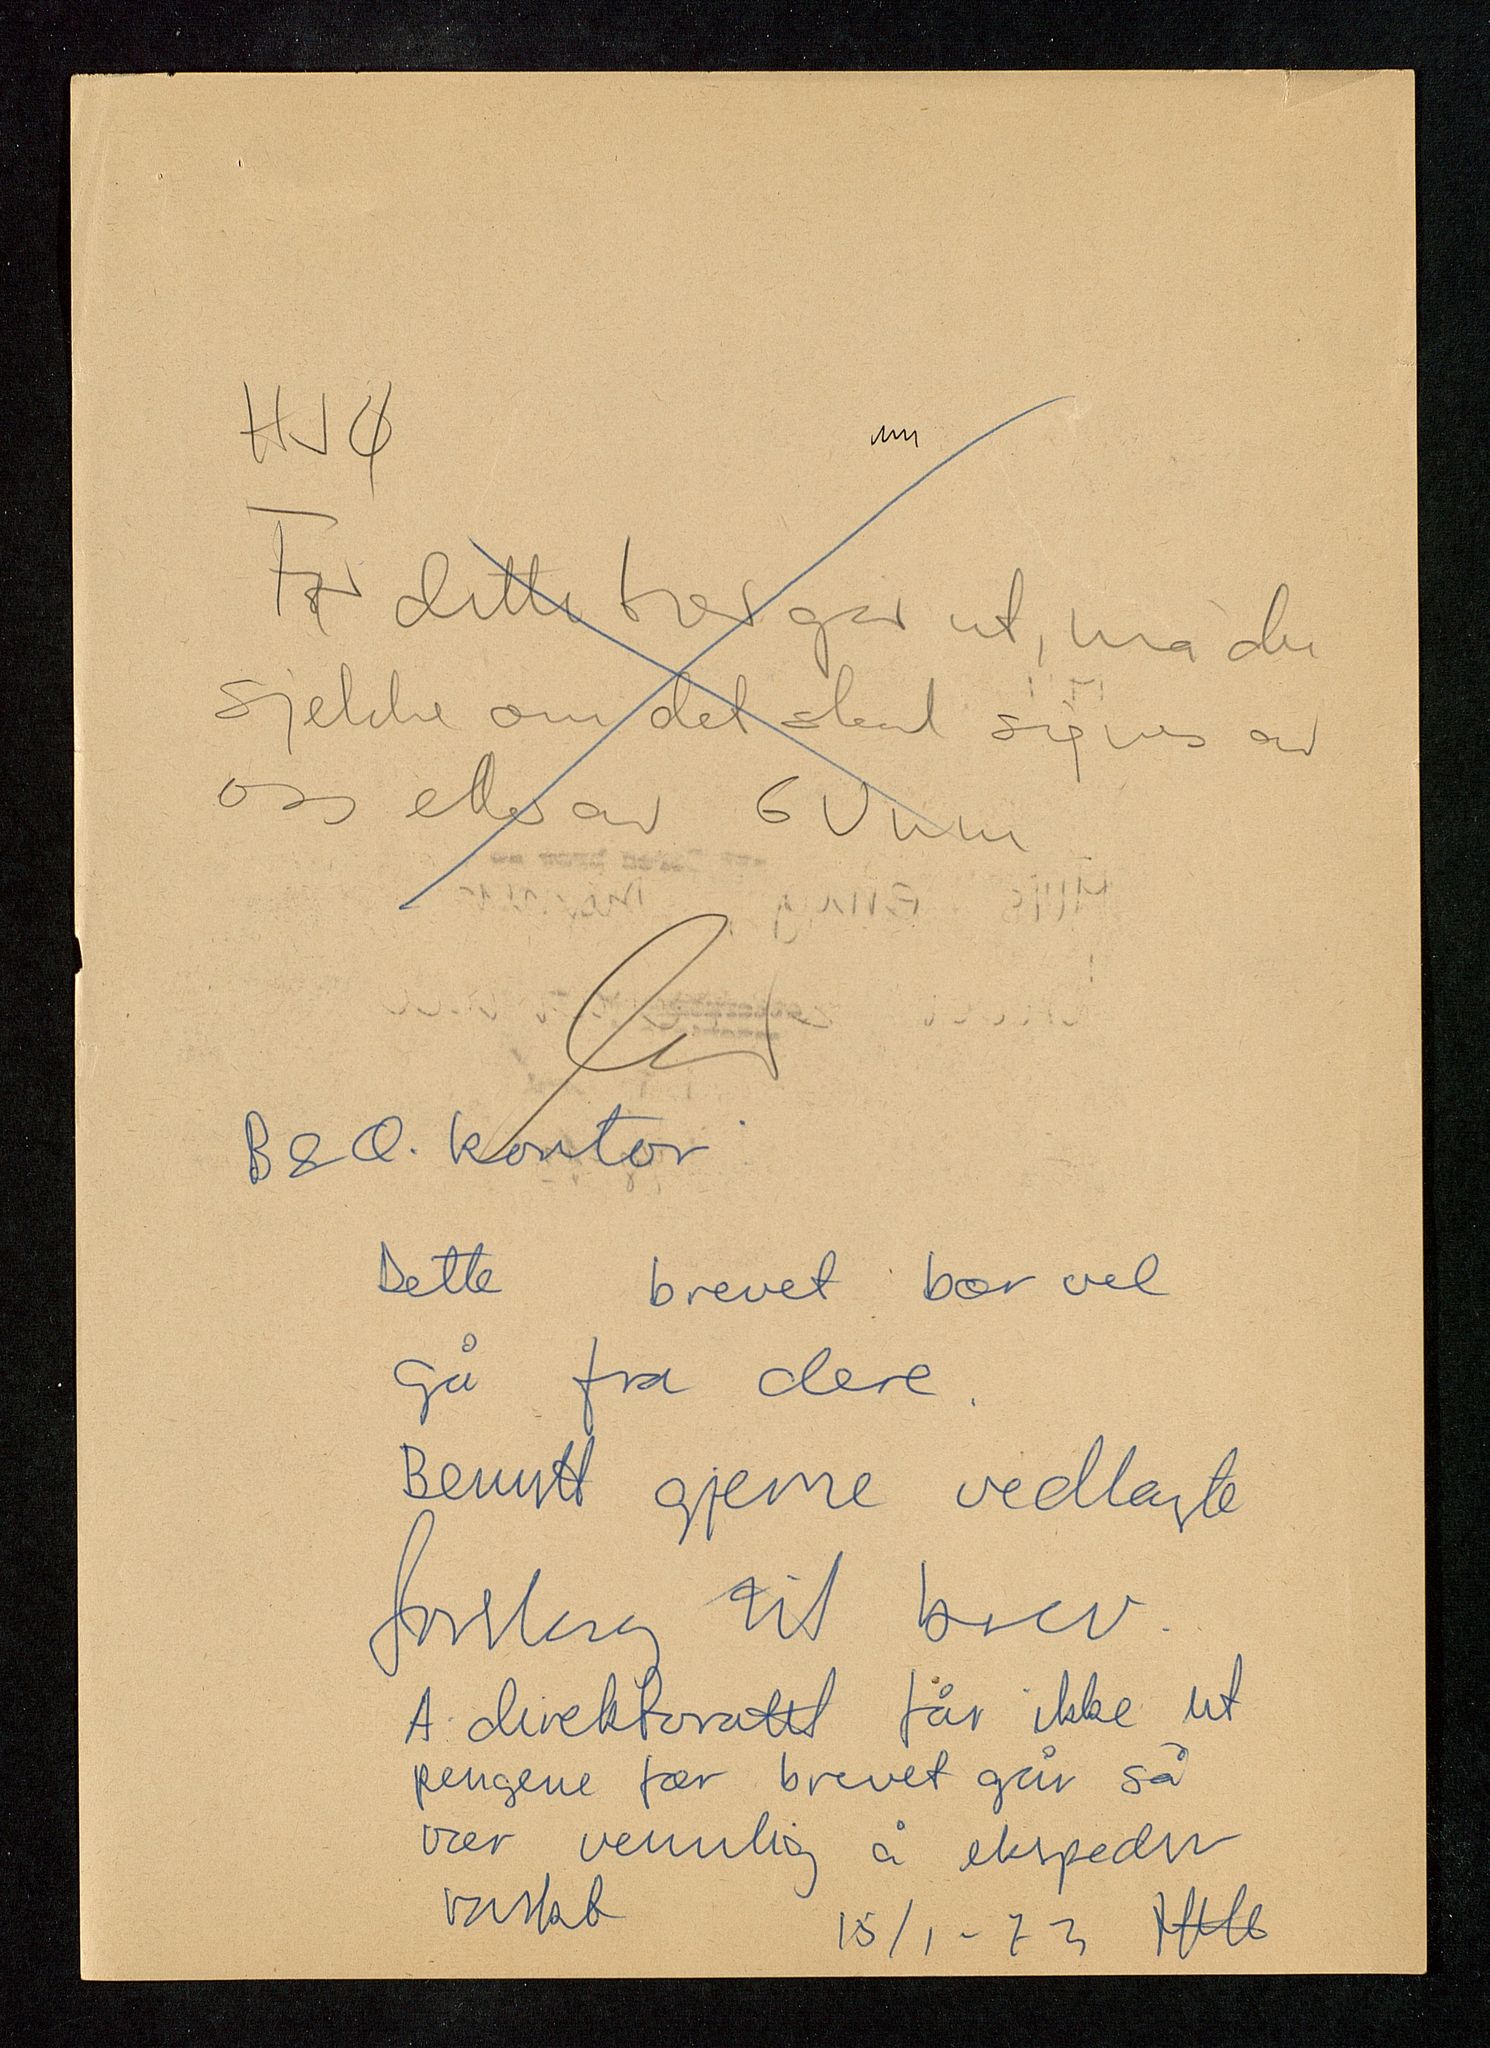 HJØ
Før dette brev går ut, må du
sjekke om det skal signes av
oss eller av
B & O. kontor
Dette brevet bør vel
gå fra dere.
Benytt gjerne vedlagte
forslag til brev.
A. direktoratet får ikke ut
pengene før brevet går så
vær vennlig å ekspeder
raskt 15/1-73